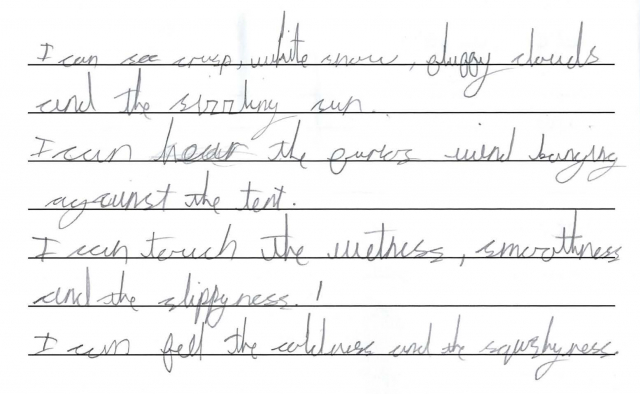 I can see crisp, white snow, fluffy clouds
and the sizzling sun.
I can hear the furios wind banging
against the tent.
I can touch the wetness, smoothness
and the slippyness. !
I can fell the coldness and the squshyness